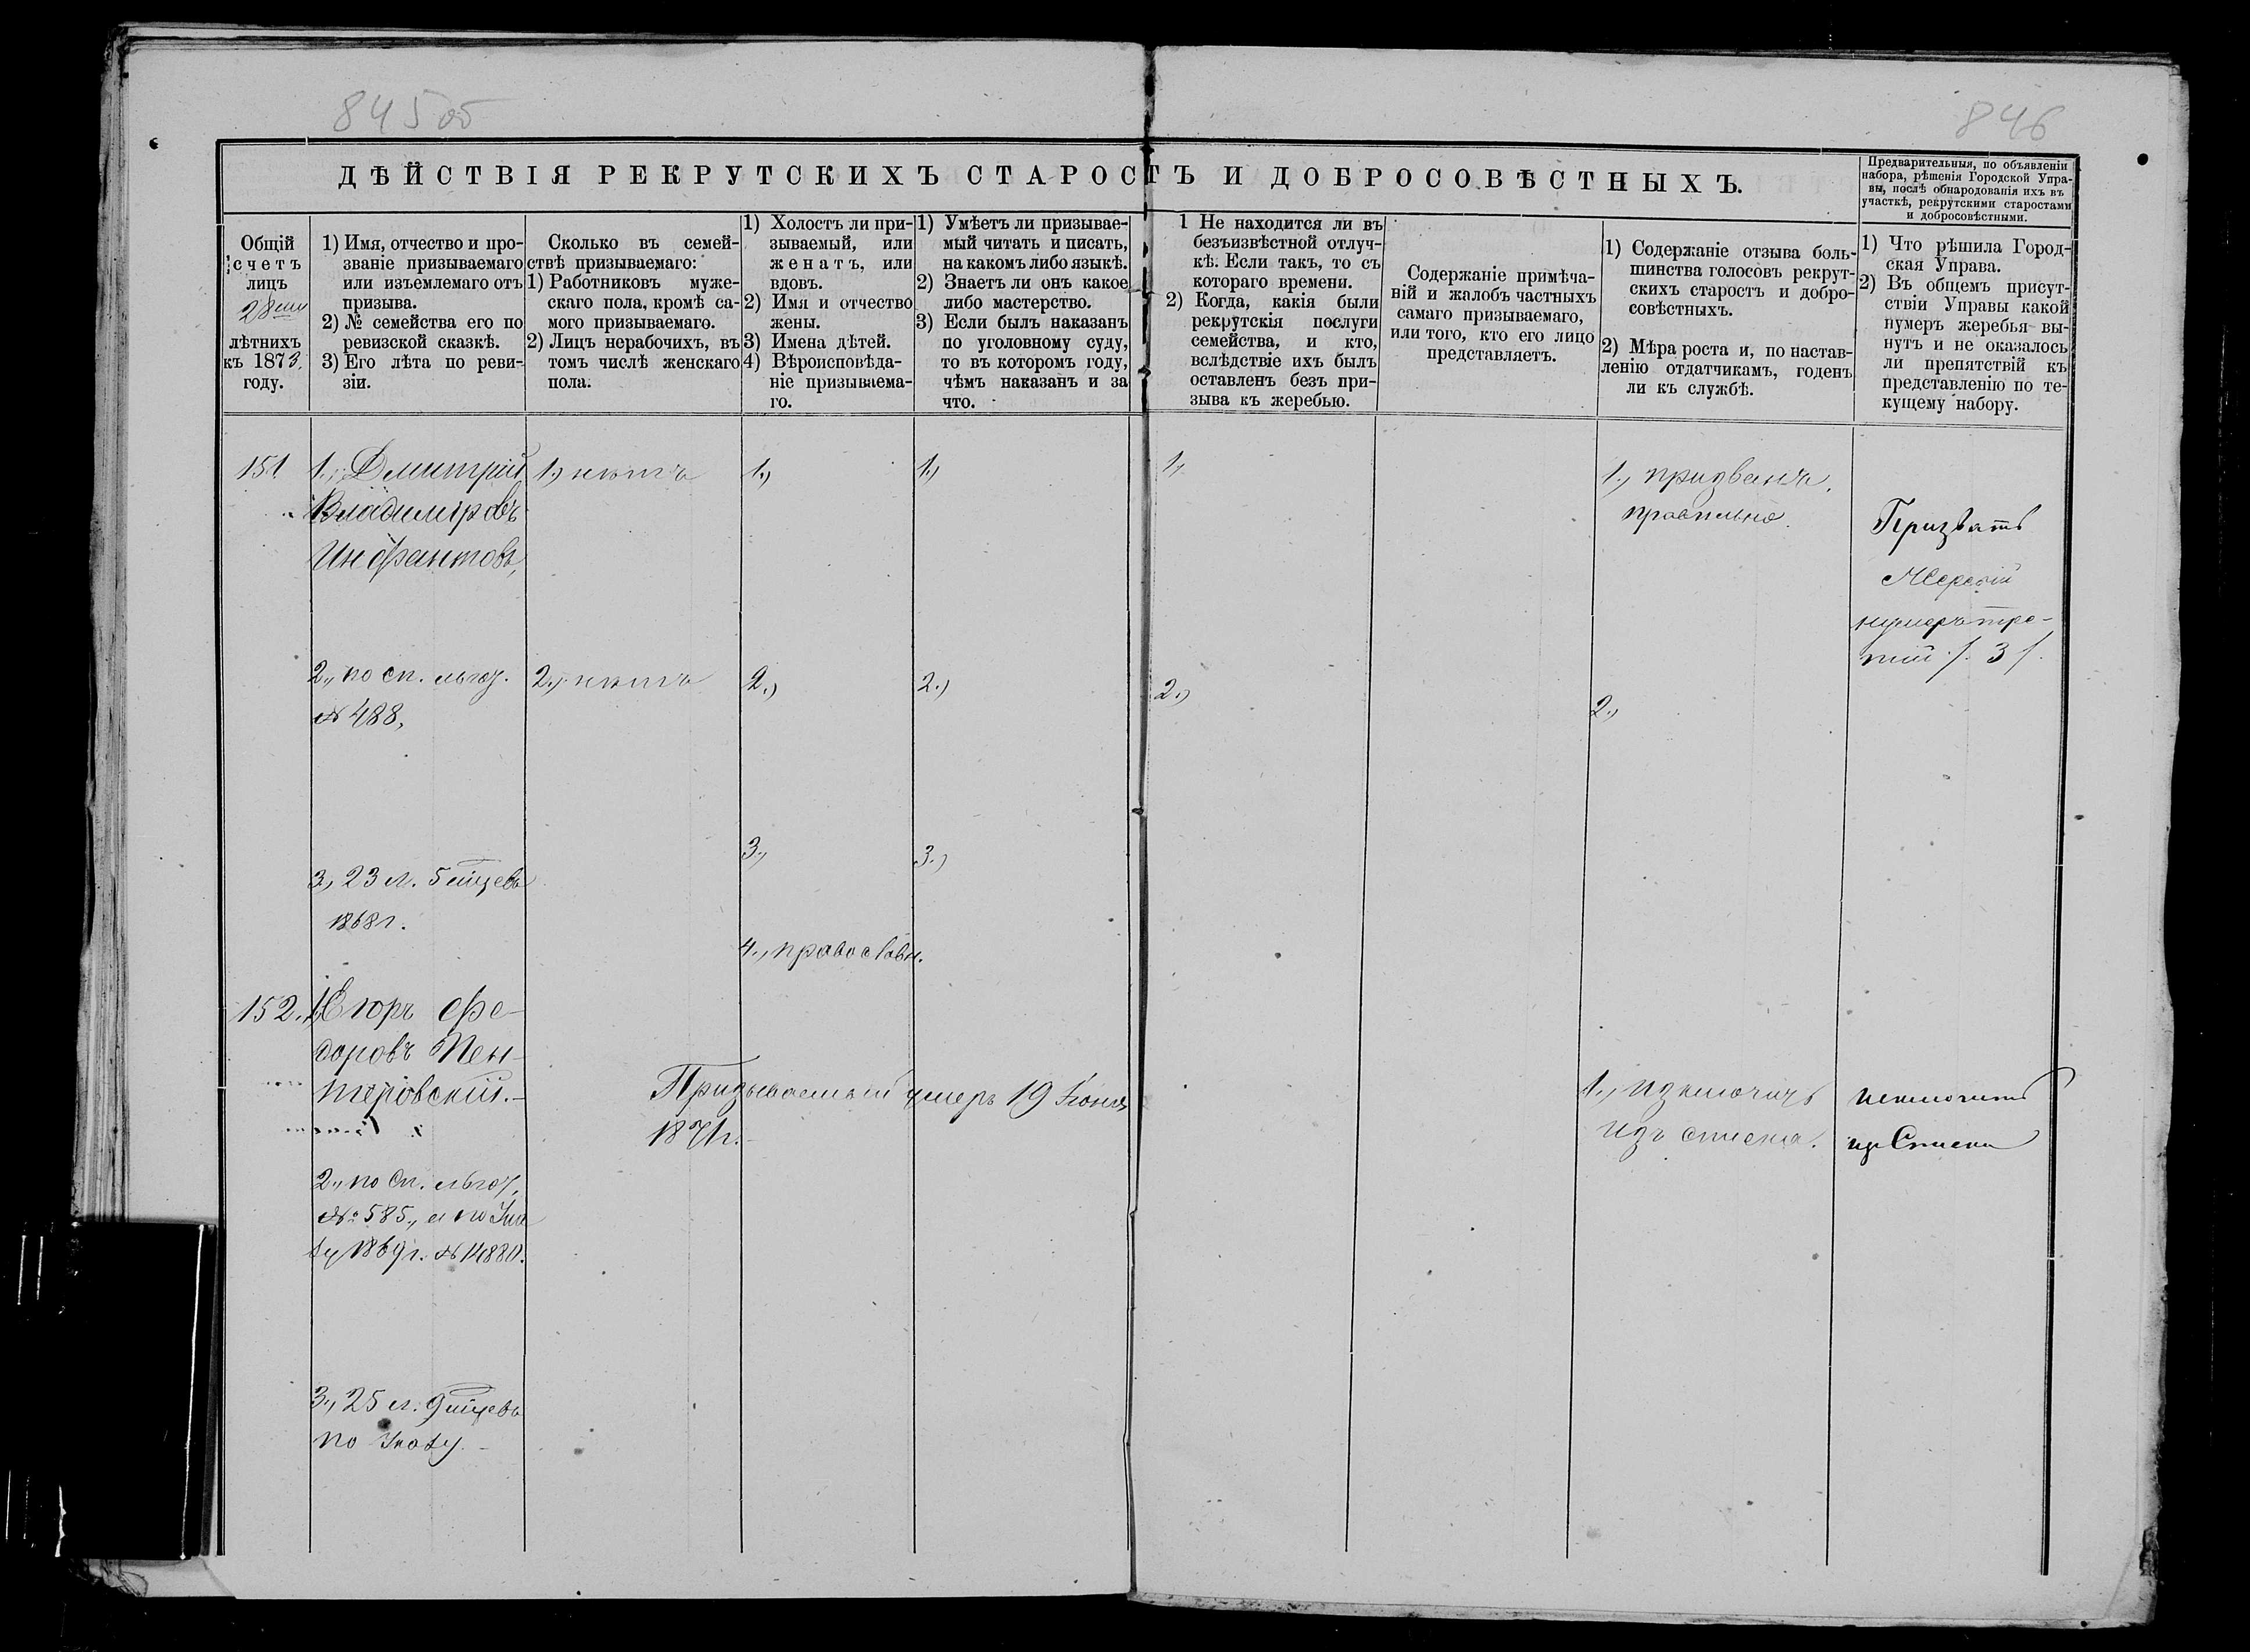 845 об
846
ДѢЙСТВІЯ РЕКРУТСКИХЪ СТАРОСТЪ И ДОБРОСОВѢСТНЫХЪ.
Предварительныя, по объявленіи
набора, рѣшенія Городской Упра-
вы, послѣ обнародованія ихъ въ
участкѣ, рекрутскими старостами
и добросовѣстными.
Общій
счетъ
лицъ
28ми
лѣтнихъ
къ 1873.
году.
1) Имя, отчество и про-
званіе призываемаго
или изъемлемаго отъ
призыва.
2) № семейства его по
ревизской сказкѣ.
3) Его лѣта по реви-
зіи.
Сколько въ семей-
ствѣ призываемаго:
1) Работниковъ муже-
скаго пола, кромѣ са-
мого призываемаго.
2) Лицъ нерабочихъ, въ
томъ числѣ женскаго
пола.
1) Холостъ ли при-
зываемый, или
женатъ, или
вдовъ.
2) Имя и отчество
жены.
3) Имена дѣтей.
4) Вѣроисповѣда-
ніе призываема-
го.
1) Умѣетъ ли призывае-
мый читать и писать,
на какомъ либо языкѣ.
2) Знаетъ ли онъ какое
либо мастерство.
3) Если былъ наказанъ
по уголовному суду,
то въ которомъ году,
чѣмъ наказанъ и за
что.
1 Не находится ли въ
безъизвѣстной отлуч-
кѣ. Если такъ, то съ
котораго времени.
2) Когда, какія были
рекрутскія послуги
семейства, и кто,
вслѣдствіе ихъ былъ
оставленъ безъ при-
зыва къ жеребью.
Содержаніе примѣча-
ній и жалобъ частныхъ
самаго призываемаго,
или того, кто его лицо
представляетъ.
1) Содержаніе отзыва боль-
шинства голосовъ рекрут-
скихъ старостъ и добро-
совѣстныхъ.
2) Мѣра роста и, по настав-
ленію отдатчикамъ, годенъ
ли къ службѣ.
1) Что рѣшила Город-
ская Управа.
2) Въ общемъ присут-
ствіи Управы какой
нумеръ жеребья вы-
нутъ и не оказалось
ли препятствій къ
представленію по те-
кущему набору.
151.
1., Дмитрій
Владиміровъ
Инфантовъ,
2., по сп. льгот.
№ 488,
3., 23 л. 5 мцевъ
1868 г.
1.) нѣтъ
2.) нѣтъ
1.)
2.)
3.,
4., православн.
1.)
2.)
3.)
1.,
2.,
1., призванъ
правильно.
2.,
Призвать
Жеребій
нумеръ тре-
тій ./. 3 /.
152.
1., Егоръ Фе-
доровъ Пен-
теровскій.-
2., по сп. льгот.
№ 585,
1869 г. №
3., 25 л. 9 мцевъ
по
Призываемый умеръ 19 Іюня
1871 г.
1., изключить
изъ списка.
исключить
из Списка